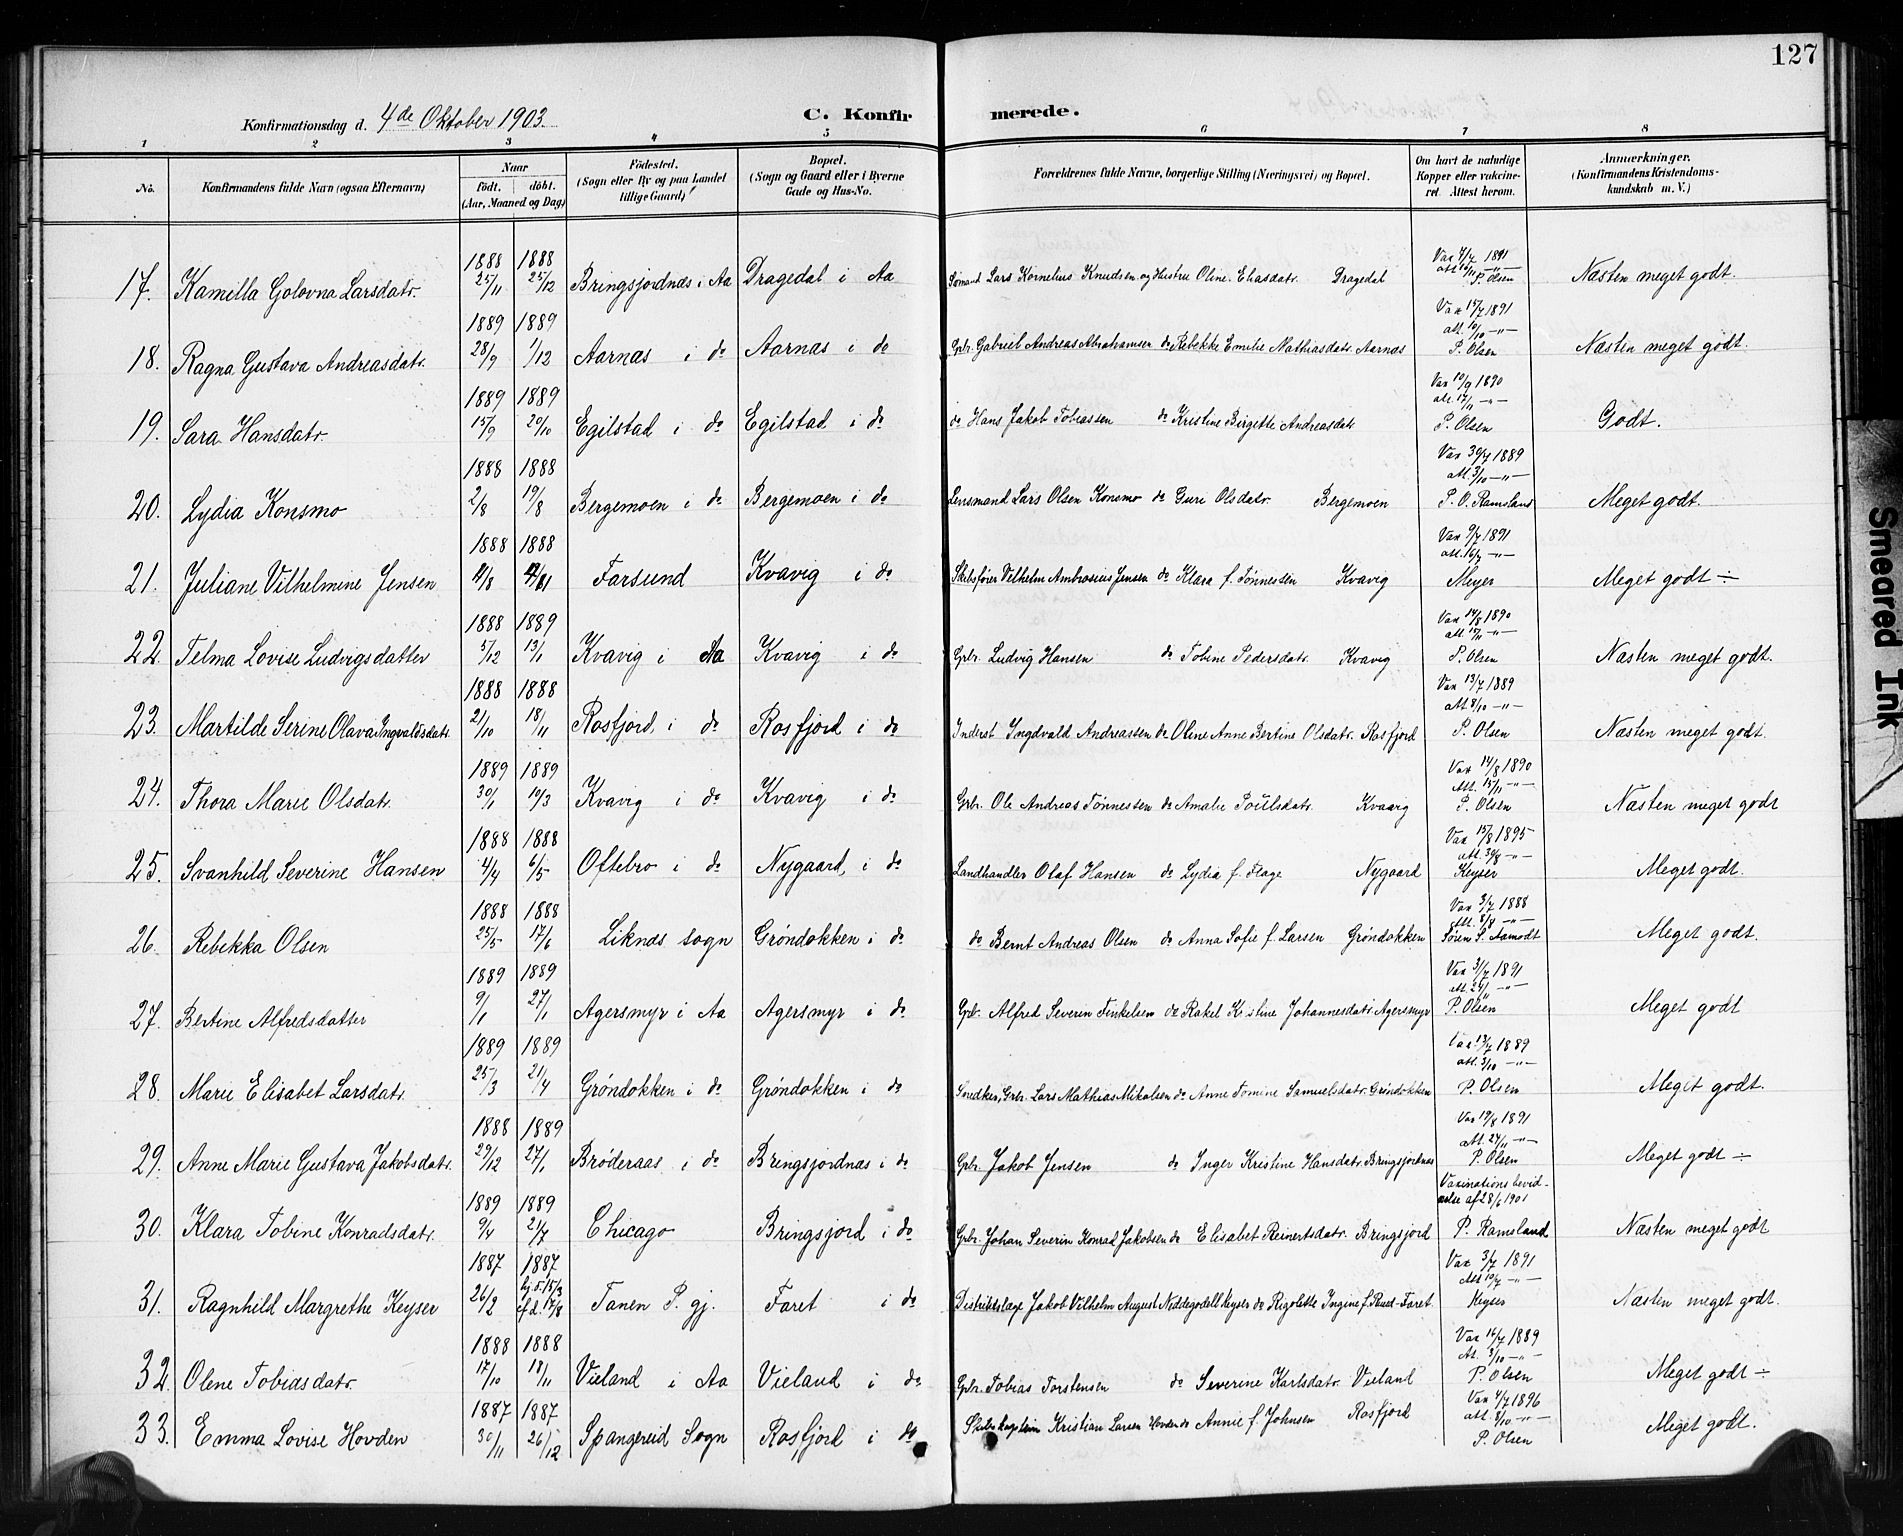 127
Konfirmationsdag d. 4de Oktober 1903.
C. Konfirmerede.
1 2 3 4 5 6 7 8
No. Konfirmandens fulde Navn (ogsaa Efternavn) Naar født. døbt. (Aar, Maaned og Dag) Fødested. (Sogn eller By og paa Landet tillige Gaard) Bopæl. (Sogn og Gaard eller i Byerne Gade og Hus-No. Forældrenes fulde Navne, borgerlige Stilling (Næringsvei) og Bopæl. Om havt de naturlige Kopper eller vakcineret. Attest herom. Anmerkninger. (Konfirmandens Kristendomskundskab m. V.)
17. Kamilla Golovna Larsdatr. 1888 25/11 1888 25/12 Bringsjordnæs i Aa Dragedal i Aa Sømand Lars Kornelius Knudsen og Hustru Oline Eliasdatr. Dragedal 1891 P. Olsen Næsten meget godt.
18. Ragna Gustava Andreasdatr. 1889 28/9 1889 1/12 Aarnæs i do Aarnæs i do Gbr. Gabriel Andreas Abrahamsen do Rebekke Emilie Mathiasdatr. Aarnæs Vax 15/7 1891 att. 10/10 -"- P. Olsen Næsten meget godt.
19. Sara Hansdatr. 1889 15/9 1889 20/10 Egilstad i do Egilstad i do do Hans Jakob Tobiassen do Kristine Birgitte Andreasdatr Vax 10/9 1890 att. 17/11 -"- P. Olsen Godt.
20. Lydia Konsmo 1888 2/8 1888 19/8 Bergemoen i do Bergemoen i do Lensmand Lars Olsen Konsmo do Guri Olsdatr. Bergemoen Vax 1889 Att. 3/10 -"- P. O. Ramsland Meget godt.
21. Juliane Vilhelmine Jensen 1888 4/8 1888 Farsund Kvavig i do Skibsfører Vilhelm Ambrosius Jensen do Klara f. Tønnesen Kvavig Vax 9/7 1891 att. 16/7 -"- Meyer Meget godt ÷
22. Telma Lovise Ludvigsdatter 1888 5/12 1889 13/1 Kvavig i Aa Kvavig i do Gbr. Ludvig Hansen do Tobine Pedersdatr. Kvavig Vax 14/8 1890 att. 15/11 -"- P. Olsen Næsten meget godt.
23. Martilde Serine Olava Ingvaldsdatr. 1888 21/10 1888 18/11 Rosfjord i do Rosfjord i do Inderst Ingdvald Andreassen do Oline Anne Bertine Olsdatr. Rosfjord Vax 13/7 1889 att. 8/10 -"- P. Olsen Næsten meget godt.
24. Thora Marie Olsdatr. 1889 30/1 1889 10/3 Kvavig i do Kvavig i do Gbr. Ole Andreas Tønnesen do Amalie Poulsdatr. Kvavig Vax 14/8 1890 Att. 15/11 -"- P. Olsen Næsten meget godt
25. Svanhild Severine Hansen 1888 4/4 1888 6/5 Oftebro i do Nygaard, i do Landhandler Olaf Hansen do Lydia f. Flage Nygaard Vax 15/8 1895 att. -"- Keyser Meget godt.
26. Rebekka Olsen 1888 25/5 1888 17/6 Liknæs sogn Grøndokken i do do Bernt Andreas Olsen do Anna Sofie f. Larsen Grøndokken Vax 3/7 1888 Att. -"- Søren S. Aamodt Meget godt.
27. Bertine Alfredsdatter 1889 9/1 1889 27/1 Agersmyr i Aa Agersmyr i do Gbr. Alfred Severin Finkelsen do Rakel Kristine Johannesdatr. Agersmyr Vax 3/7 1891 P. Olsen Meget godt
28. Marie Elisabet Larsdatr. 1889 25/3 1889 21/4 Grøndokken i do Grøndokken i do Snedker, Gbr. Lars Mathias Mikalsen do Anne Tomine Samuelsdatr. Grøndokken Vax 13/7 1889 att. 3/10 -"- P. Olsen Meget godt.
29. Anne Marie Gustava Jakobsdatr. 1888 29/12 1889 27/1 Brøderaas i do Bringsjordnæs i do Gbr. Jakob Jensen do Inger Kristine Hansdatr. Bringsjordnæs Vax 19/8 1891 att. 24/11 -"- P. Olsen Meget godt ÷
30. Klara Tobine Konradsdatr. 1889 9/4 1889 21/7 Chicago Bringsjord i do Gbr. Johan Severin Konrad Jakobsen do Elisabet Reinertsdatr. Bringsjord Vaxinations bevidnelse af 28/6 1901 P. Ramsland Næsten meget godt
31. Ragnhild Margrethe Keyser 1887 26/2 1887 hj.d. 15/3 ef.d. 17/8 Tanen P. gj. Faret i do Distriktslæge Jakob Vilhelm August Niddegodell Keyser do Rigolette Ingine f. Ruud - Faret. Vax 3/7 1891 Att 10/7 -"- Keyser Næsten meget godt.
32. Olene Tobiasdatr. 1888 17/10 1888 18/11 Vieland i Aa Vieland i do Gbr. Tobias Torstensen do Severine Karlsdatr. Vieland Vax 16/7 1889 At. 3/10 -"- P. Olsen Meget godt ÷
33. Emma Lovise Hovden 1887 30/11 1887 26/12 Spangereid Sogn Rosfjord i do Skibskaptein Kristian Larsen Hovden do Annie f. Johnsen Rosfjord Vax 4/7 1896 att. 8/10 -"- P. Olsen Meget godt.
Smeared Ink